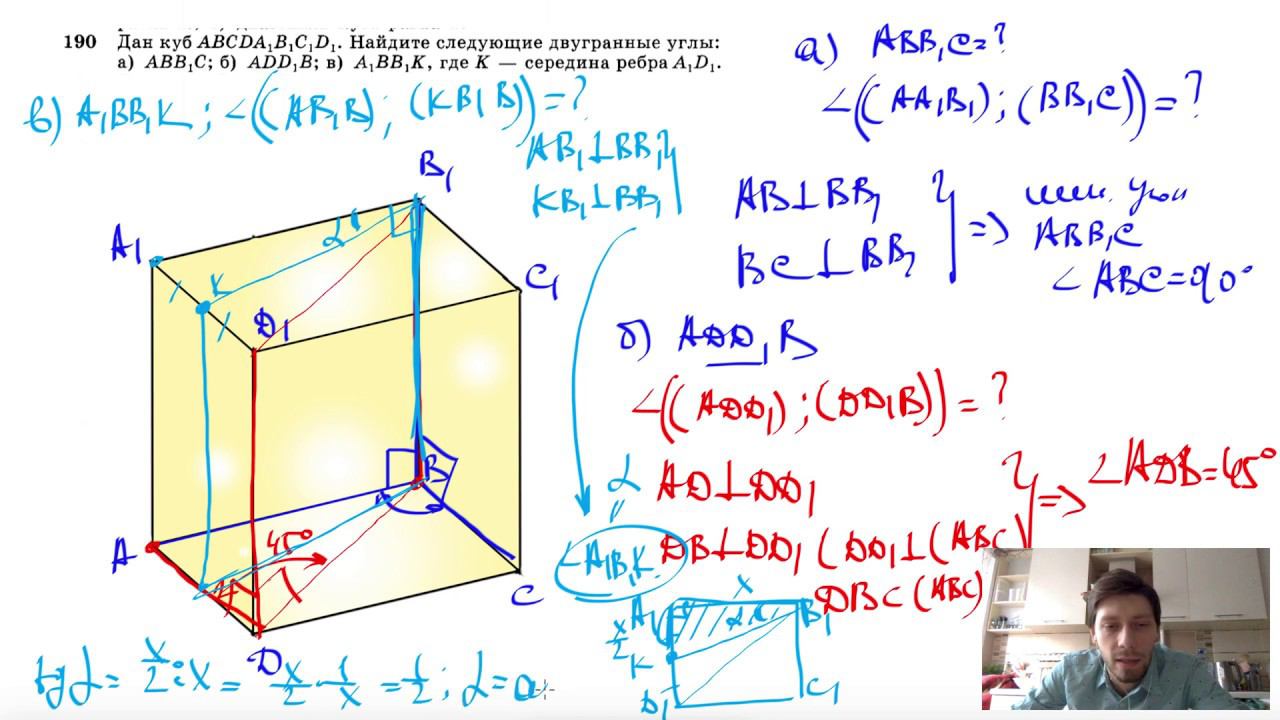 190 Дан куб ABCDA₁B₁C₁D₁. Найдите следующие двугранные углы:
а) ABB₁C; б) ADD₁B; в) A₁BB₁K, где K — середина ребра A₁D₁.
а) ABB₁C=?
∠((AA₁B₁); (BB₁C))=?
в) A₁BB₁K; ∠((AB₁B); (KB₁B))=?
AB₁⊥BB₁
KB₁⊥BB₁
AB⊥BB₁
BC⊥BB₁
=> лин. угол
ABB₁C
∠ABC=90°
б) ADD₁B
∠((ADD₁); (DD₁B))=?
AD⊥DD₁
DB⊥DD₁ (DD₁⊥(ABC)
DB⊂(ABC)
=> ∠ADB=45°
α
∠A₁B₁K
B₁
A₁
K
α
D₁
C₁
B
A
45°
C
D
x
A₁
α
B₁
x/2
K
D₁
C₁
tg α = x/2 : x = x/2 · 1/x = 1/2; α=a